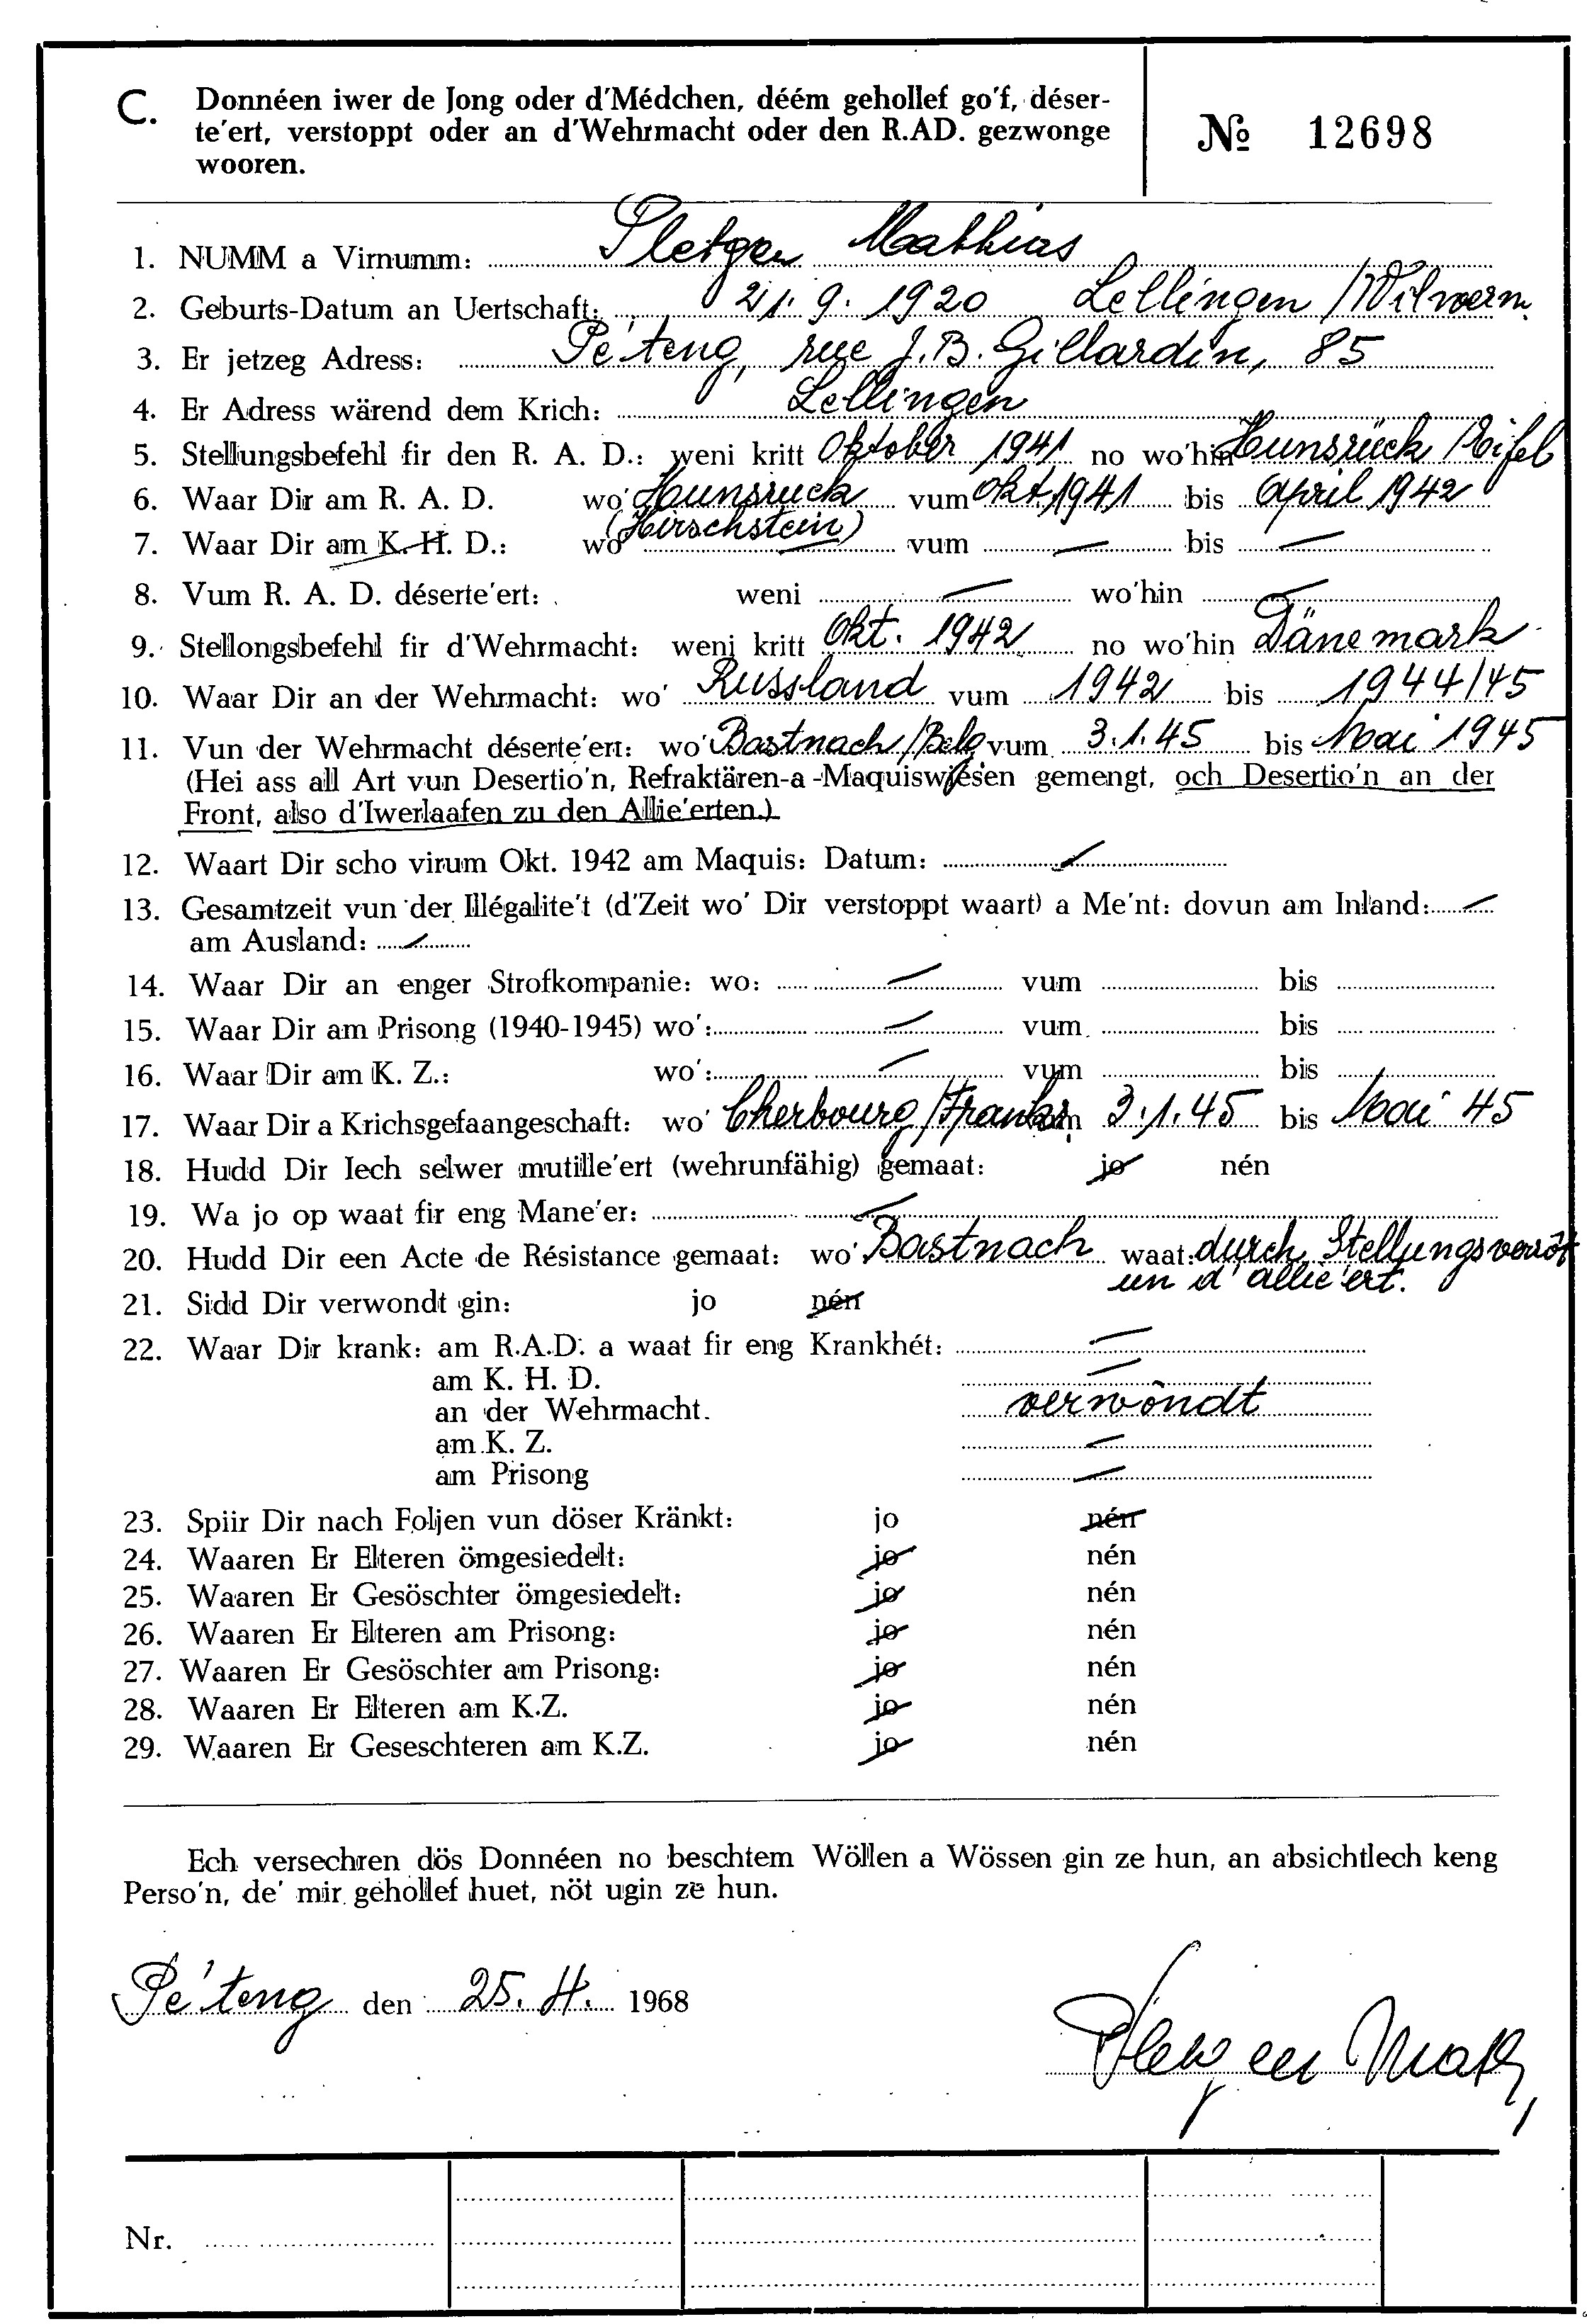 C. Donnéen iwer de Jong oder d'Médchen, déém gehollef go'f, déser-
te'ert, verstoppt oder an d'Wehrmacht oder den R.AD. gezwonge
wooren.
№ 12698
1. NUMM a Virnumm: Mathias
2. Geburts-Datum an Uertschaft: 21. 9. 1920 Lellingen / Wilwerw.
3. Er jetzeg Adress: Pe'teng, rue J.B. Gillardin, 85
4. Er Adress wärend dem Krich: Lellingen
5. Stellungsbefehl fir den R. A. D.: weni kritt Oktober 1941 no wo'hin Hunsrück / Eifel
6. Waar Dir am R. A. D. wo' Hunsruck vum Okt. 1941 bis April 1942
(Hirschstein)
7. Waar Dir am K. H. D.: wo' — vum — bis —
8. Vum R. A. D. déserte'ert: weni — wo'hin —
9. Stellongsbefehl fir d'Wehrmacht: weni kritt Okt. 1942 no wo'hin Dänemark
10. Waar Dir an der Wehrmacht: wo' Russland vum 1942 bis 1944/45
11. Vun der Wehrmacht déserte'ert: wo' Bastnach/Belg vum 3.1.45 bis Mai 1945
(Hei ass all Art vun Desertio'n, Refraktären-a -Maquiswiesen gemengt, och Desertio'n an der
Front, also d'Iwerlaafen zu den Allie'erten.)
12. Waart Dir scho virum Okt. 1942 am Maquis: Datum: —
13. Gesamtzeit vun der Illégalite't (d'Zeit wo' Dir verstoppt waart) a Me'nt: dovun am Inland: —
am Ausland: —
14. Waar Dir an enger Strofkompanie: wo: — vum bis
15. Waar Dir am Prisong (1940-1945) wo': — vum bis
16. Waar Dir am K. Z.: wo': — vum bis
17. Waar Dir a Krichsgefaangeschaft: wo' Cherbourg/Frankr. vum 3.1.45 bis Mai 45
18. Hudd Dir Iech selwer mutille'ert (wehrunfähig) gemaat: jo nén
19. Wa jo op waat fir eng Mane'er: —
20. Hudd Dir een Acte de Résistance gemaat: wo' Bastnach waat: durch Stellungsverrôt
un d'allié'ert.
21. Sidd Dir verwondt gin: jo nén
22. Waar Dir krank: am R.A.D. a waat fir eng Krankhét: —
am K. H. D. —
an der Wehrmacht. verwôndt
am K. Z. —
am Prisong —
23. Spiir Dir nach Foljen vun döser Kränkt: jo nén
24. Waaren Er Elteren ömgesiedelt: jo nén
25. Waaren Er Gesöschter ömgesiedelt: jo nén
26. Waaren Er Elteren am Prisong: jo nén
27. Waaren Er Gesöschter am Prisong: jo nén
28. Waaren Er Elteren am K.Z. jo nén
29. Waaren Er Geseschteren am K.Z. jo nén
Ech versechren dös Donnéen no beschtem Wöllen a Wössen gin ze hun, an absichtlech keng
Perso'n, de' mir gehollef huet, nöt ugin ze hun.
Pe'teng den 25. 4. 1968
Math,
Nr.